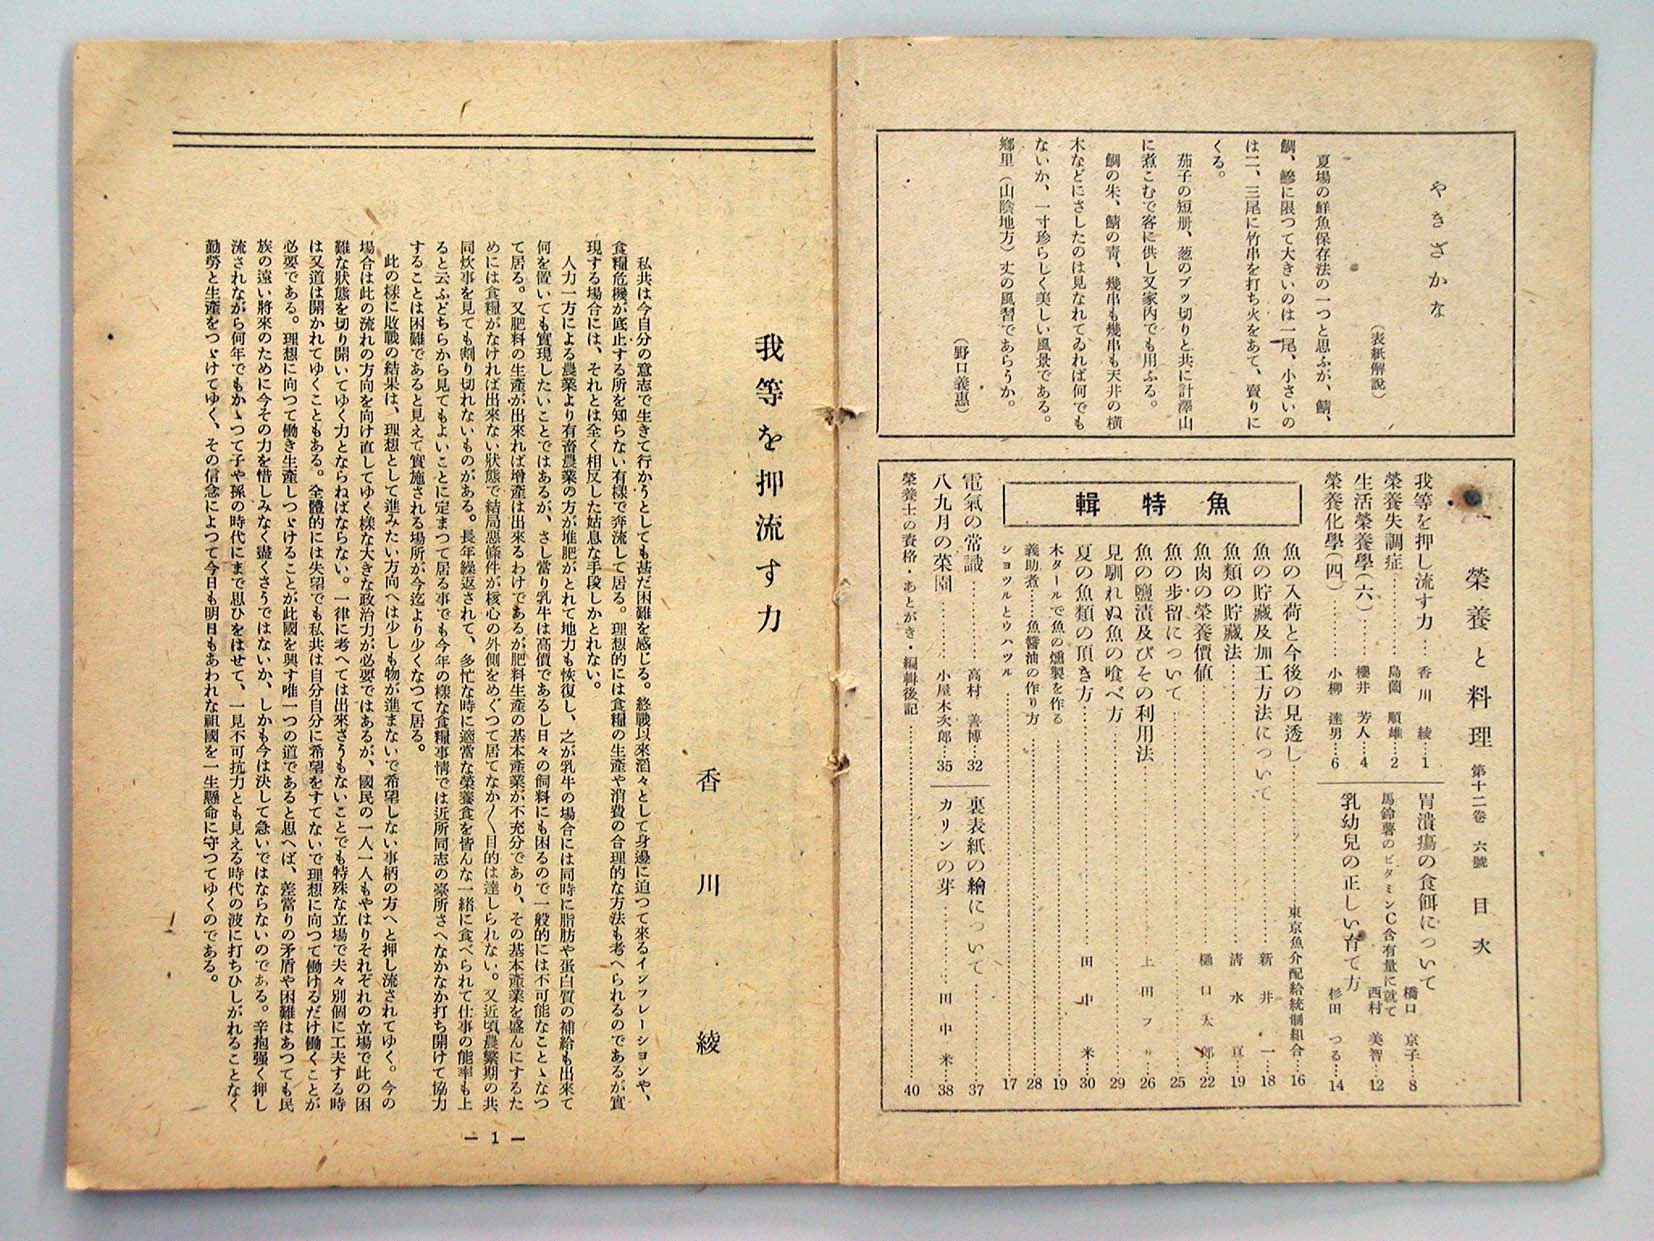 やきざかな
（表紙解説）
夏場の鮮魚保存法の一つと思ふが、鯖、
鯛、鰺に限つて大きいのは一尾、小さいの
は二、三尾に竹串を打ち火をあて、賣りに
くる。
茄子の短册、葱のブツ切りと共に計澤山
に煮こむで客に供し又家內でも用ふる。
鯛の朱、鯖の靑、幾串も幾串も天井の橫
木などにさしたのは見なれてゐれば何でも
ないか、一寸珍らしく美しい風景である。
鄕里（山陰地方）丈の風習であらうか。
（野口義惠）
榮養と料理 第十二卷 六號 目次
我等を押し流す力…香川 綾…1
榮養失調症…島薗 順雄…2
生活榮養學（六）…櫻井 芳人…4
榮養化學（四）…小柳 達男…6
胃潰瘍の食餌について 橋口 京子…8
馬鈴薯のビタミンC含有量に就て 西村 美智…12
乳幼兒の正しい育て方 杉田 つる…14
魚特輯
魚の入荷と今後の見透し…東京魚介配給統制組合…16
魚の貯藏及加工方法について…新井 一…18
魚類の貯藏法…淸水 亘…19
魚肉の榮養價値…樋口太郞…22
魚の步留について…25
魚の鹽漬及びその利用法…上田フサ…26
見馴れぬ魚の喰べ方…29
夏の魚類の頂き方…田中 米…30
木タールで魚の燻製を作る…19
義助煮……魚醬油の作り方…28
シヨツルとウハツル…17
電氣の常識…高村 善博…32
八九月の菜園…小屋木次郞…35
裏表紙の繪について…37
カリンの芽…田中 米…38
榮養士の資格・あとがき・編輯後記…40
我等を押流す力
香川 綾
私共は今自分の意志で生きて行かうとしても甚だ困難を感じる。終戰以來滔々として身邊に迫つて來るインフレーシヨンや、
食糧危機が底止する所を知らない有樣で奔流して居る。理想的には食糧の生產や消費の合理的な方法も考へられるのであるが實
現する場合には、それとは全く相反した姑息な手段しかとれない。
人力一方による農業より有畜農業の方が堆肥がとれて地力も恢復し、之が乳牛の場合には同時に脂肪や蛋白質の補給も出來て
何を置いても實現したいことではあるが、さし當り乳牛は高價であるし日々の飼料にも困るので一般的には不可能なことゝなつ
て居る。又肥料の生產が出來れば增產は出來るわけであるが肥料生產の基本產業が不充分であり、その基本產業を盛んにするた
めには食糧がなければ出來ない狀態で結局惡條件が核心の外側をめぐつて居てなか〱目的は達しられない。又近頃農繁期の共
同炊事を見ても割り切れないものがある。長年繰返されて、多忙な時に適當な榮養食を皆んな一緒に食べられて仕事の能率も上
ると云ふどちらから見てもよいことに定まつて居る事でも今年の樣な食糧事情では近所同志の臺所さへなかなか打ち開けて協力
することは困難であると見えて實施される場所が今迄より少しくなつて居る。
此の樣に敗戰の結果は、理想として進みたい方向へは少しも物が進まないで希望しない事柄の方へと押し流されてゆく。今の
場合は此の流れの方向を向け直してゆく樣な大きな政治力が必要ではあるが、國民の一人一人もやはりそれぞれの立場で此の困
難な狀態を切り開いてゆく力とならねばならない。一律に考へては出來さうもないことでも特殊な立場で夫々別個に工夫する時
は又道は開かれてゆくこともある。全體的には失望でも私共は自分自分に希望をすてないで理想に向つて働けるだけ働くことが
必要である。理想に向つて働き生產しつゞけることが此國を興す唯一つの道であると思へば、差當りの矛盾や困難はあつても民
族の遠い將來のために今その力を惜しみなく盡くさうではないか、しかも今は決して急いではならないのである。辛抱强く押し
流されながら何年でもかゝつて子や孫の時代にまで思ひをはせて、一見不可抗力とも見える時代の波に打ちひしがれることなく
勤勞と生產をつゞけてゆく、その信念によつて今日も明日もあわれな祖國を一生懸命に守つてゆくのである。
— 1 —